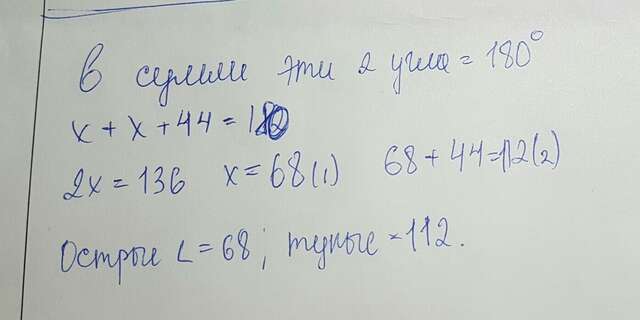 В сумме эти 2 угла = 180°
x + x + 44 = 180
2x = 136 x = 68 (1) 68 + 44 = 112 (2)
Острые ∠ = 68; тупые = 112.